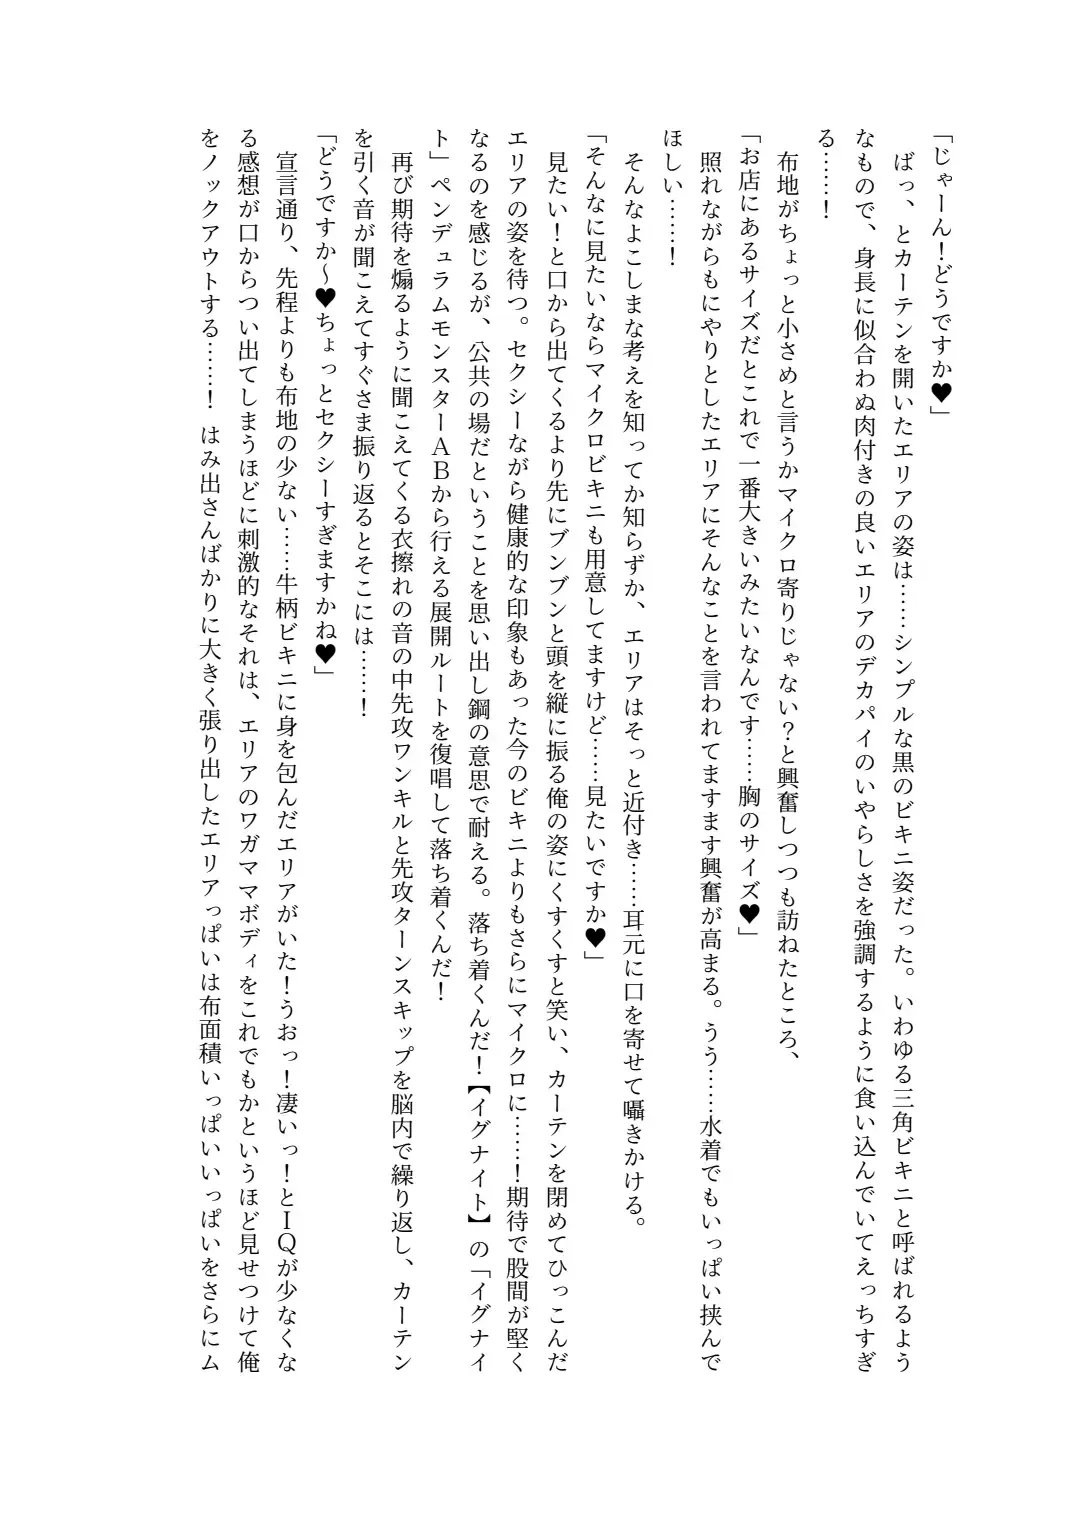 「じゃーん！どうですか♥」
ばっ、とカーテンを開いたエリアの姿は……シンプルな黒のビキニ姿だった。いわゆる三角ビキニと呼ばれるよう
なもので、身長に似合わぬ肉付きの良いエリアのデカパイのいやらしさを強調するように食い込んでいてえっちすぎ
る……！
布地がちょっと小さめと言うかマイクロ寄りじゃない？と興奮しつつも訪ねたところ、
「お店にあるサイズだとこれで一番大きいみたいなんです……胸のサイズ♥」
照れながらもにやりとしたエリアにそんなことを言われてますます興奮が高まる。うう……水着でもいっぱい挟んで
ほしい……！
そんなよこしまな考えを知ってか知らずか、エリアはそっと近付き……耳元に口を寄せて囁きかける。
「そんなに見たいならマイクロビキニも用意してますけど……見たいですか♥」
見たい！と口から出てくるより先にブンブンと頭を縦に振る俺の姿にくすくすと笑い、カーテンを閉めてひっこんだ
エリアの姿を待つ。セクシーながら健康的な印象もあった今のビキニよりもさらにマイクロに……！期待で股間が堅く
なるのを感じるが、公共の場だということを思い出し鋼の意思で耐える。落ち着くんだ！【イグナイト】の「イグナイ
ト」ペンデュラムモンスターＡＢから行える展開ルートを復唱して落ち着くんだ！
再び期待を煽るように聞こえてくる衣擦れの音の中先攻ワンキルと先攻ターンスキップを脳内で繰り返し、カーテン
を引く音が聞こえてすぐさま振り返るとそこには……！
「どうですか～♥ちょっとセクシーすぎますかね♥」
宣言通り、先程よりも布地の少ない……牛柄ビキニに身を包んだエリアがいた！うおっ！凄いっ！とＩＱが少なくな
る感想が口からつい出てしまうほどに刺激的なそれは、エリアのワガママボディをこれでもかというほど見せつけて俺
をノックアウトする……！ はみ出さんばかりに大きく張り出したエリアっぱいは布面積いっぱいいっぱいをさらにム